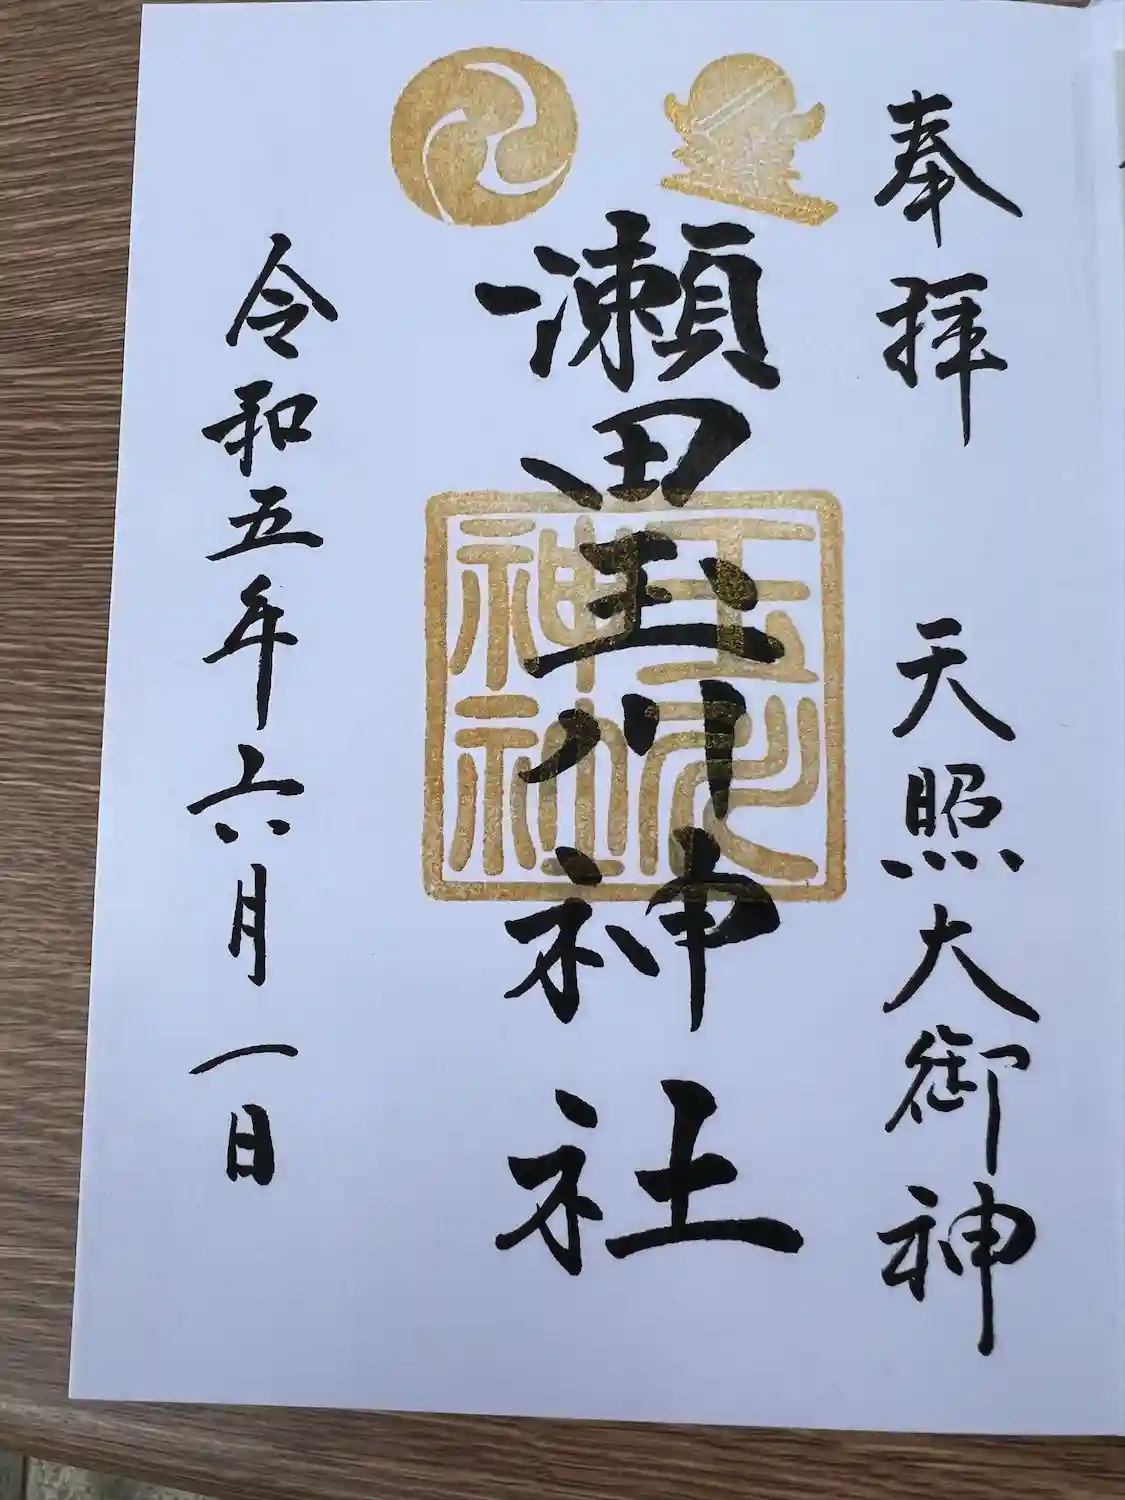 奉拝 天照大御神
瀬田玉川神社
玉川
神社
令和五年六月一日